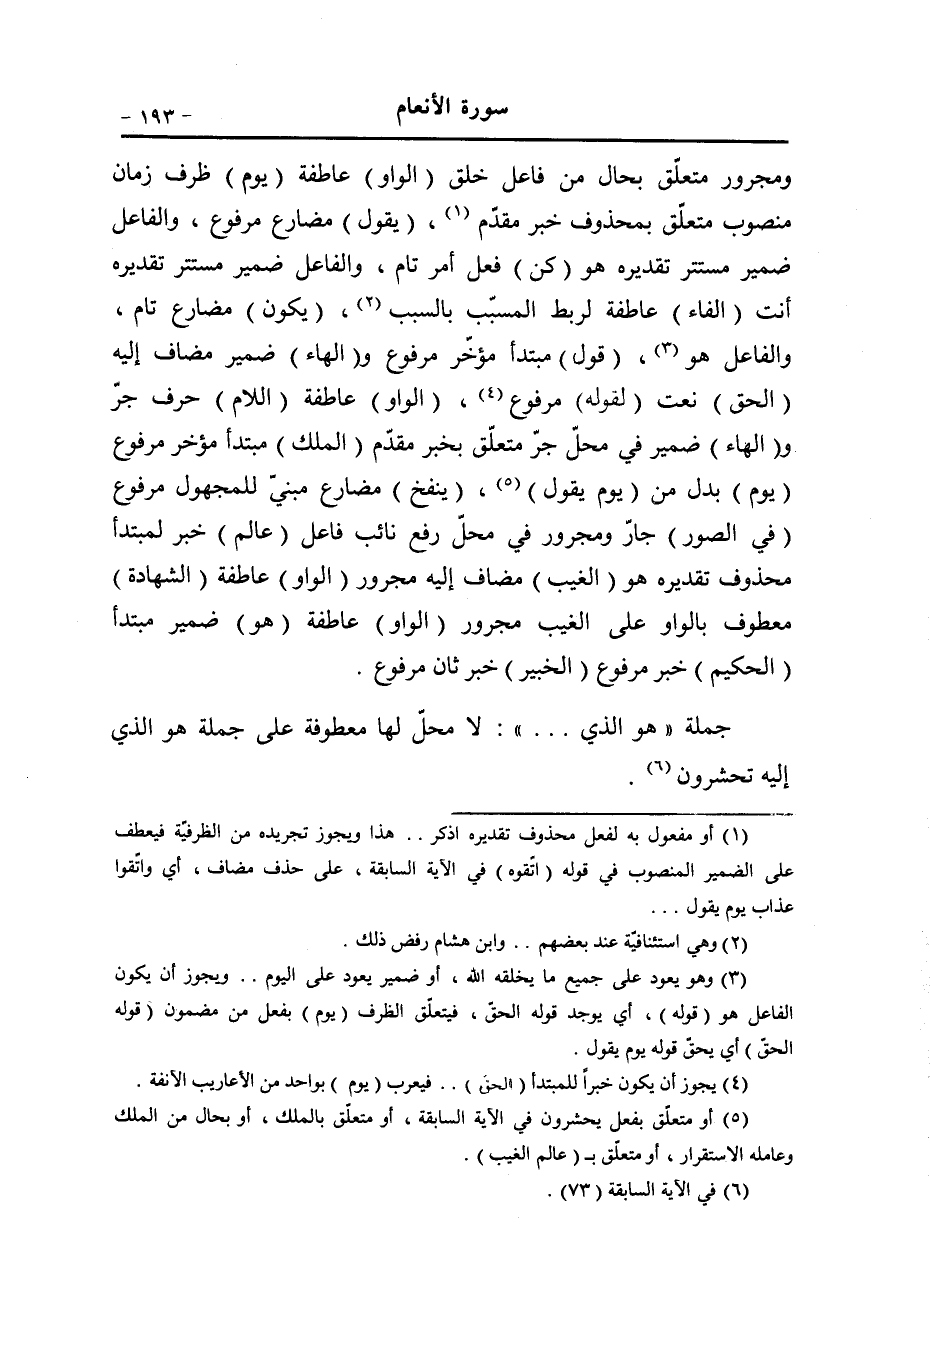 سورة الأنعام
- ١٩٣ -
ومجرور متعلّق بحال من فاعل خلق ( الواو) عاطفة (يوم) ظرف زمان
منصوب متعلّق بمحذوف خبر مقدّم (١) ، ( يقول) مضارع مرفوع ، والفاعل
ضمير مستتر تقديره هو (كن ) فعل أمر تام ، والفاعل ضمير مستتر تقديره
أنت ( الفاء) عاطفة لربط المسبّب بالسبب (٢) ، (يكون) مضارع تام ،
والفاعل هو (٣) ، ( قول) مبتدأ مؤخّر مرفوع و( الهاء ) ضمير مضاف إليه
( الحق ) نعت ( لقوله) مرفوع (٤) ، ( الواو) عاطفة ( اللام ) حرف جرّ
و( الهاء ) ضمير في محلّ جرّ متعلّق بخبر مقدّم ( الملك ) مبتدأ مؤخر مرفوع
( يوم ) بدل من ( يوم يقول ) (٥) ، ( ينفخ ) مضارع مبنيّ للمجهول مرفوع
( في الصور ) جارّ ومجرور في محلّ رفع نائب فاعل ( عالم ) خبر لمبتدأ
محذوف تقديره هو ( الغيب ) مضاف إليه مجرور ( الواو) عاطفة ( الشهادة )
معطوف بالواو على الغيب مجرور ( الواو) عاطفة ( هو) ضمير مبتدأ
( الحكيم ) خبر مرفوع ( الخبير ) خبر ثان مرفوع .
جملة « هو الذي . . . » : لا محلّ لها معطوفة على جملة هو الذي
إليه تحشرون (٦) .
(١) أو مفعول به لفعل محذوف تقديره اذكر . . هذا ويجوز تجريده من الظرفيّة فيعطف
على الضمير المنصوب في قوله ( اتّقوه ) في الآية السابقة ، على حذف مضاف ، أي واتّقوا
عذاب يوم يقول . . .
(٢) وهي استئنافيّة عند بعضهم . . وابن هشام رفض ذلك .
(٣) وهو يعود على جميع ما يخلقه الله ، أو ضمير يعود على اليوم . . ويجوز أن يكون
الفاعل هو ( قوله ) ، أي يوجد قوله الحقّ ، فيتعلّق الظرف ( يوم ) بفعل من مضمون ( قوله
الحقّ ) أي يحقّ قوله يوم يقول .
(٤) يجوز أن يكون خبراً للمبتدأ ( الحقّ ) . . فيعرب ( يوم ) بواحد من الأعاريب الآنفة .
(٥) أو متعلّق بفعل يحشرون في الآية السابقة ، أو متعلّق بالملك ، أو بحال من الملك
وعامله الاستقرار ، أو متعلّق بـ ( عالم الغيب ) .
(٦) في الآية السابقة ( ٧٣) .